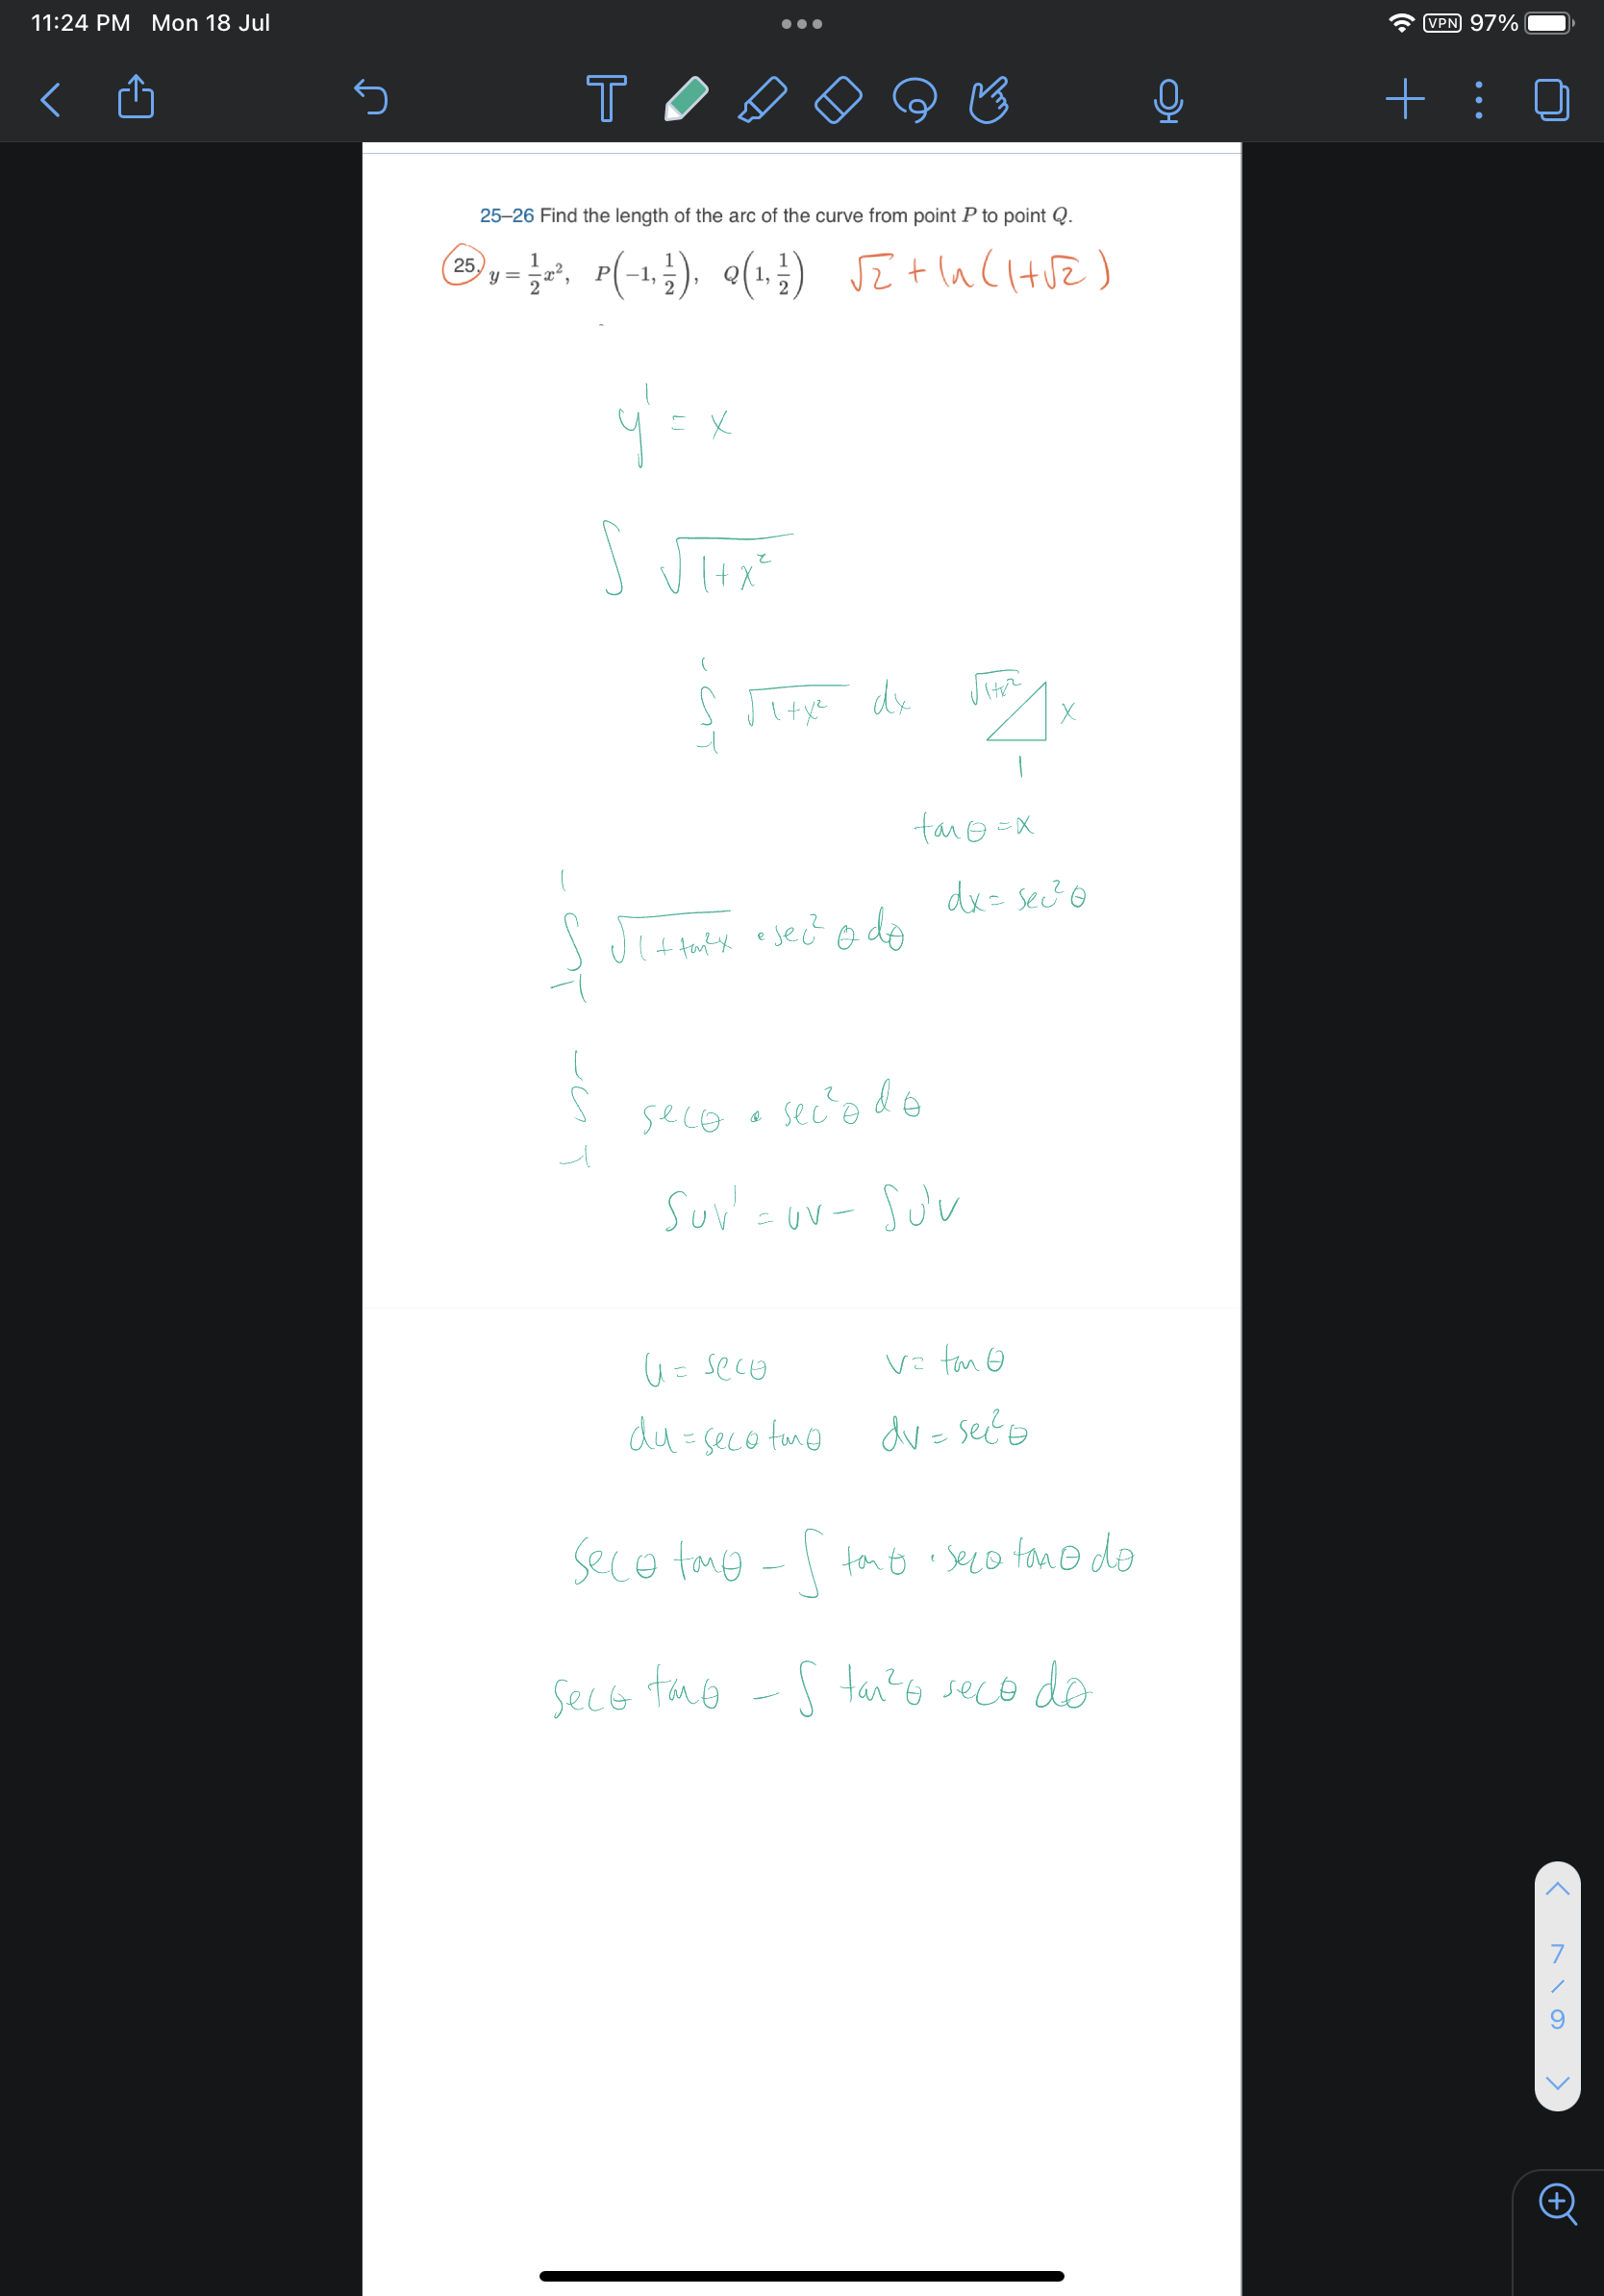 11:24 PM Mon 18 Jul VPN 97%
25–26 Find the length of the arc of the curve from point P to point Q.
25. y = 1/2 x², P(−1, 1/2), Q(1, 1/2) √2 + ln(1+√2)
y' = x
∫ √(1+x²)
∫₋₁¹ √(1+x²) dx √(1+x²) x
1
tanθ = x
dx = sec²θ
∫₋₁¹ √(1+tan²x) · sec²θ dθ
∫₋₁¹ secθ · sec²θ dθ
∫uv' = uv − ∫u'v
u = secθ v = tanθ
du = secθ tanθ dv = sec²θ
secθ tanθ − ∫ tanθ · secθ tanθ dθ
secθ tanθ − ∫ tan²θ secθ dθ
7
/
9